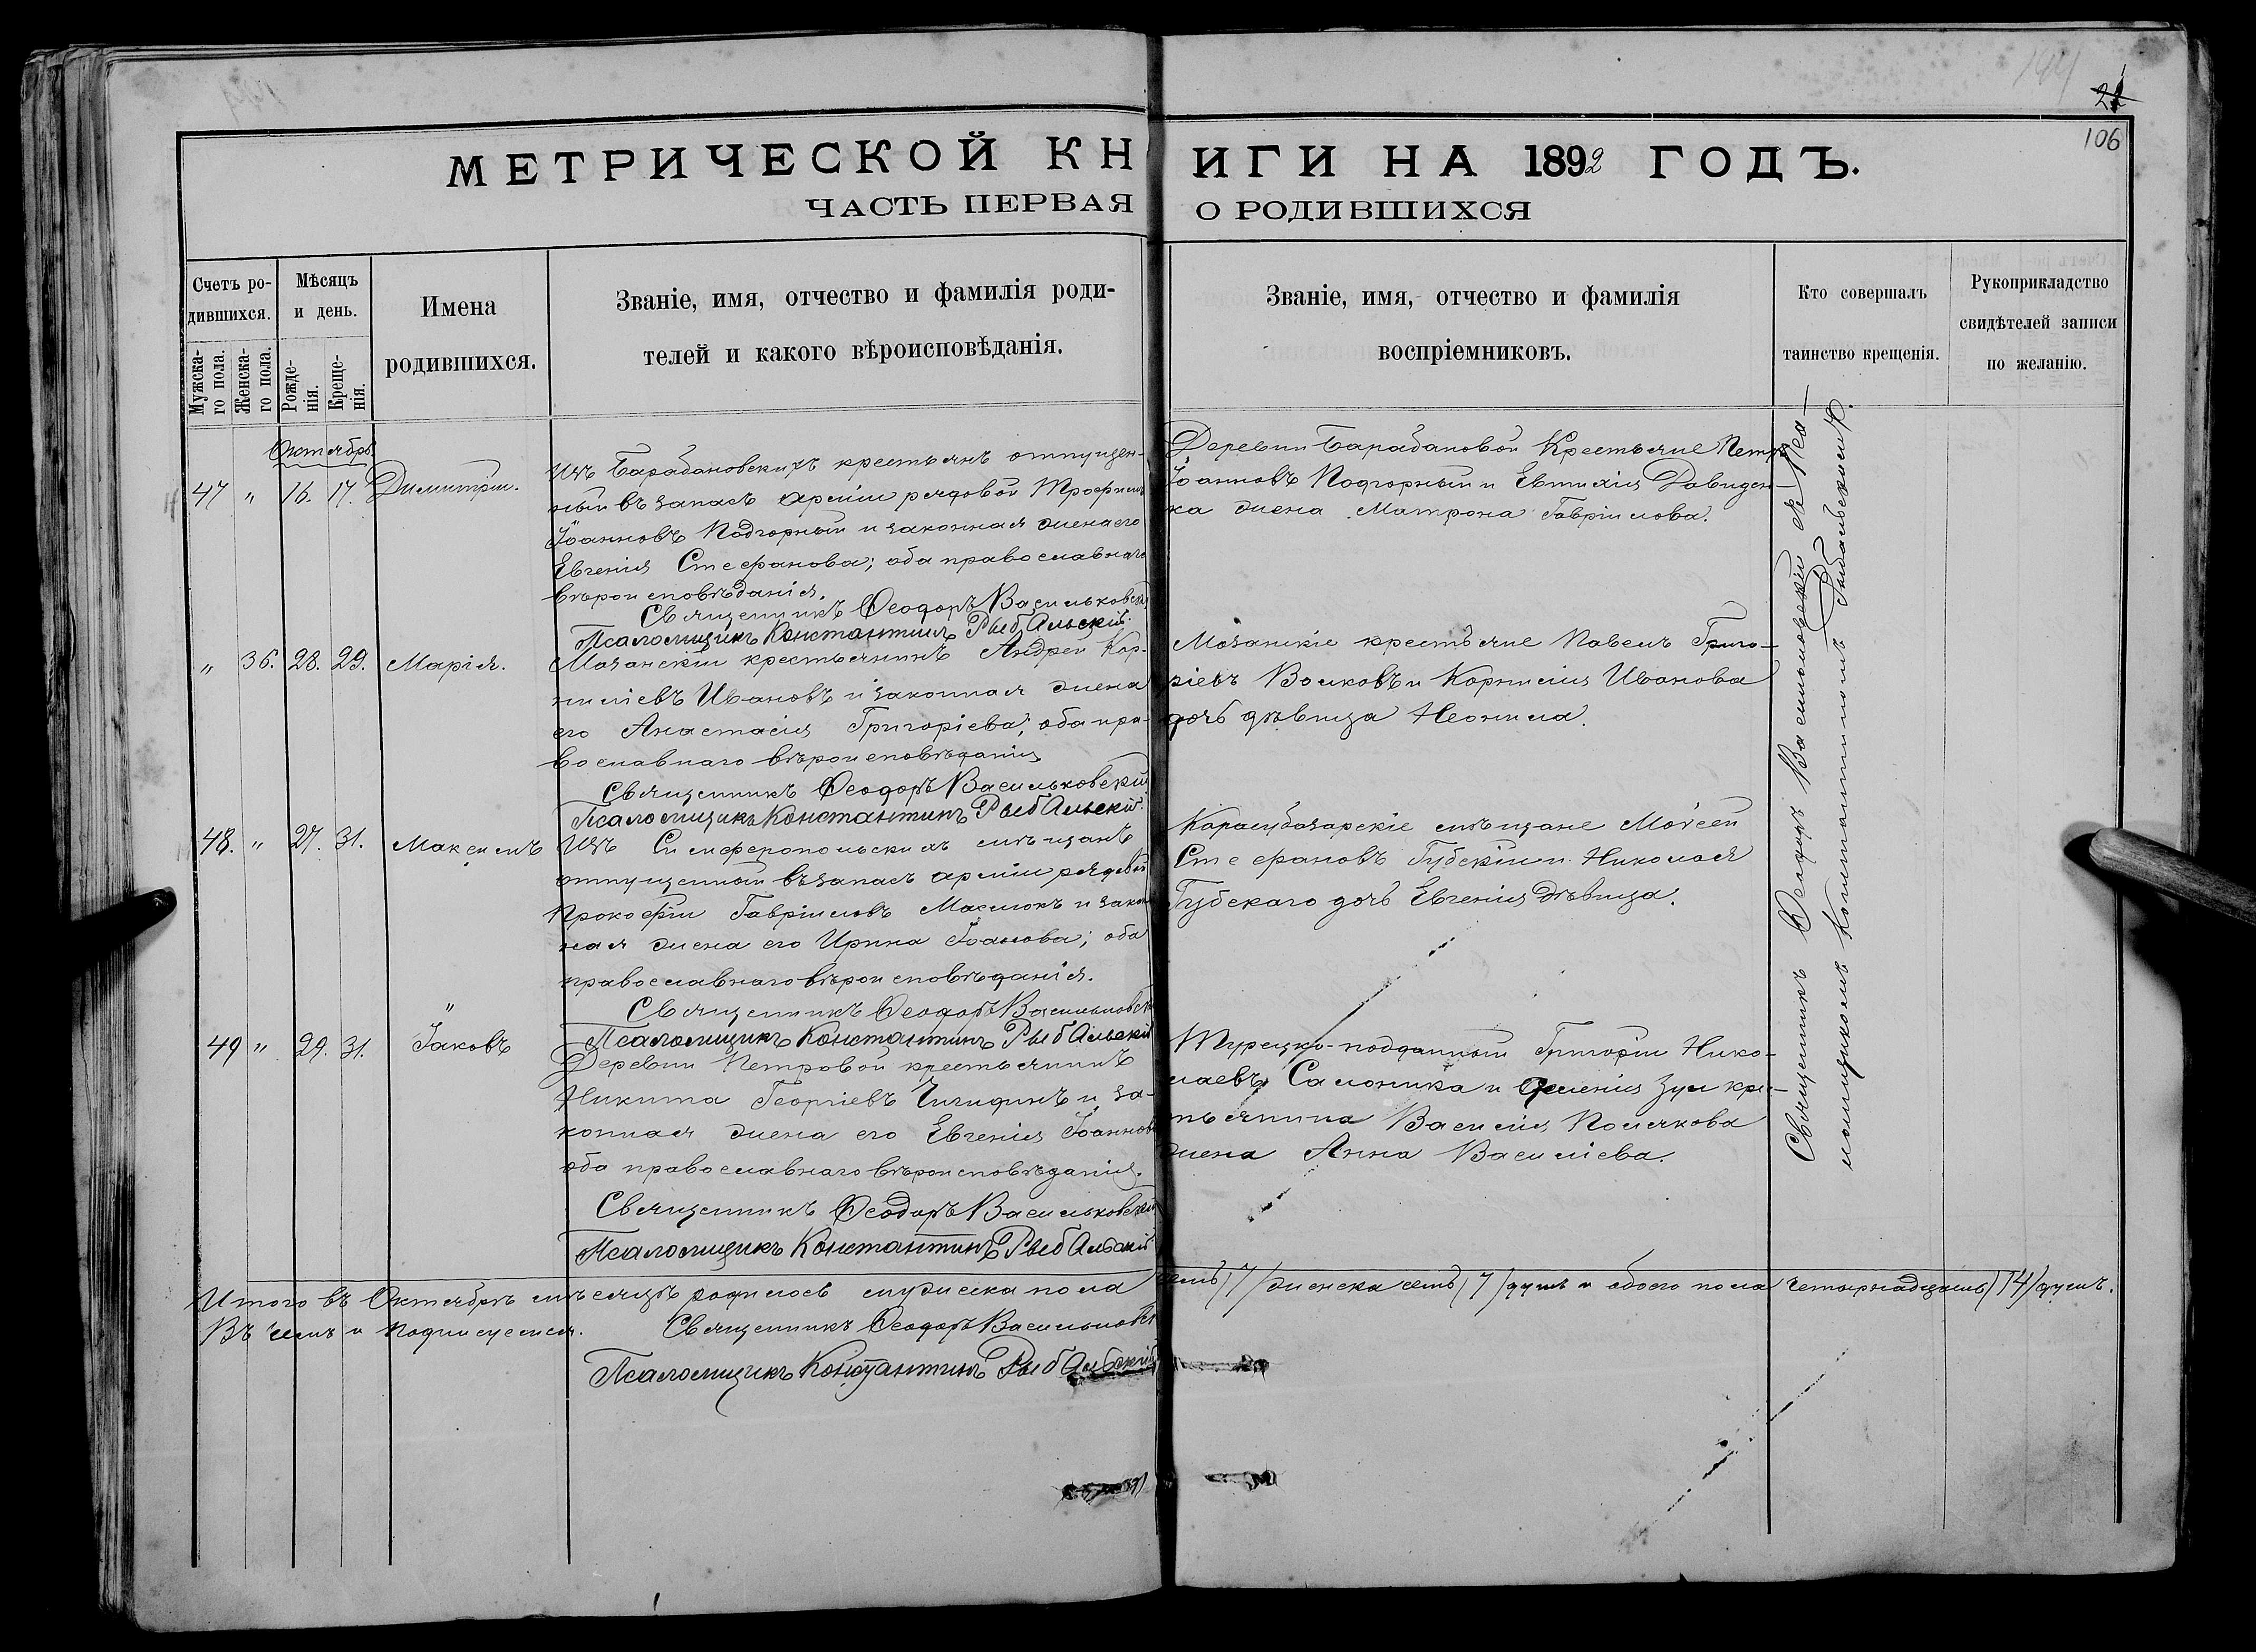 21
106
МЕТРИЧЕСКОЙ КНИГИ НА 1892 ГОДЪ.
ЧАСТЬ ПЕРВАЯ О РОДИВШИХСЯ
Счетъ ро-
дившихся.
Мужска-
го пола.
Женска-
го пола.
Мѣсяцъ
и день.
Рожде-
нія.
Креще-
нія.
Имена
родившихся.
Званіе, имя, отчество и фамилія роди-
телей и какого вѣроисповѣданія.
Званіе, имя, отчество и фамилія
воспріемниковъ.
Кто совершалъ
таинство крещенія.
Рукоприкладство
свидѣтелей записи
по желанію.
Октябрь
47 " 16. 17. Димитрій.
Изъ Барабановскихъ крестьянъ отпущен-
ный въ запасъ арміи рядовой Трофимъ
Іоанновъ Подгорный и законная жена его
Евгенія Стефанова; оба православнаго
вѣроисповѣданія.
Священникъ Ѳеодоръ Васильковскій
Псаломщикъ Константинъ Рыбальскій.
Деревни Барабановой Крестьяне Петръ
Іоанновъ Подгорный и Евтихія Давиден-
ка жена Матрона Гавріилова.
" 36. 28. 29. Марія.
Мазанскій крестьянинъ Андрей Кор-
нилiевъ Ивановъ и законная жена
его Анастасія Григоріева; оба пра-
вославнаго вѣроисповѣданія
Священникъ Ѳеодоръ Васильковскій
Псаломщикъ Константинъ Рыбальскій.
Мазанскіе крестьяне Павелъ Григо-
ріевъ Волковъ и Корнилія Иванова
дочь дѣвица Неонила.
48. " 27. 31. Максимъ
Изъ Симферопольскихъ мѣщанъ
отпущенный въ запасъ арміи рядовой
Прокофій Гавріиловъ Маслюкъ и закон-
ная жена его Ирина Іоанова; оба
православнаго вѣроисповѣданія.
Священникъ Ѳеодоръ Васильковскій
Псаломщикъ Константинъ Рыбальскій
Карасубазарскіе мѣщане Моѵсей
Стефановъ Губскій и Николая
Губскаго дочь Евгенія дѣвица.
49 " 29. 31. Іаковъ
Деревни Петровой крестьянинъ
Никита Георгіевъ Чигидинъ и за-
конная жена его Евгенія Іоаннова
оба православнаго вѣроисповѣданія.
Священникъ Ѳеодоръ Васильковскій
Псаломщикъ Константинъ Рыбальскій
Турецко-подданный Григорій Нико-
лаевъ Салоника и селенія Зуи кре-
стьянина Василія Полякова
жена Анна Васильева.
Священникъ Ѳеодоръ Васильковскій съ Пса-
ломщикомъ Константиномъ Рыбальскимъ.
Итого въ Октябрѣ мѣсяцѣ родилось мужеска пола семь /7/ женска семь /7/ душъ и обоего пола четырнадцать /14/ душъ.
Въ чемъ и подписуемся. Священникъ Ѳеодоръ Васильковскій
Псаломщикъ Константинъ Рыбальскій